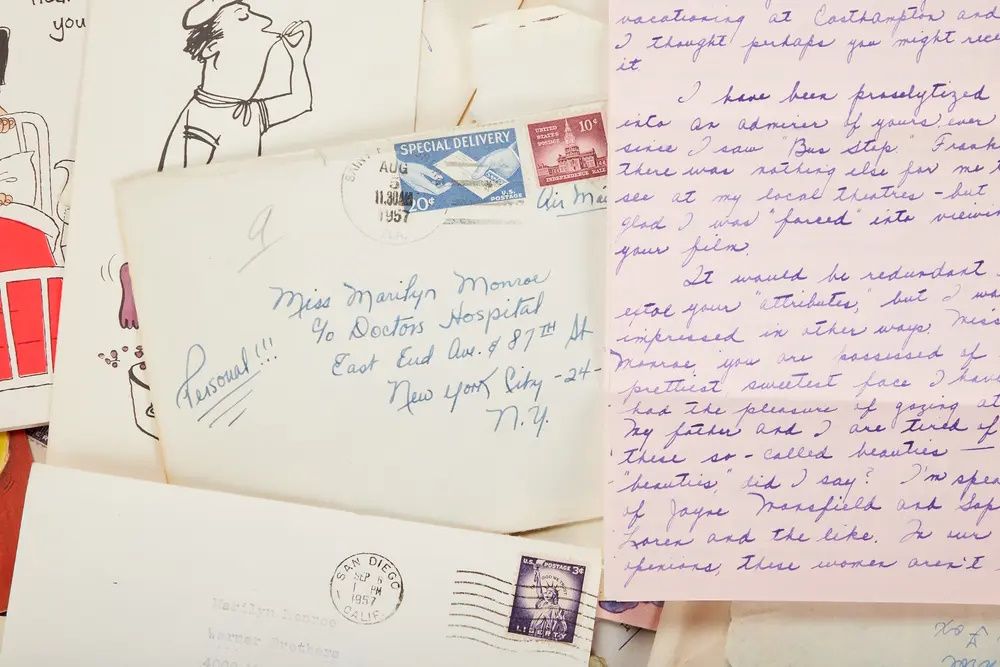 you
SPECIAL DELIVERY
20¢
U.S.
POSTAGE
UNITED
STATES
POSTAGE
10¢
INDEPENDENCE HALL
AUG
5
11.30AM
1957
Air Mai
Miss Marilyn Monroe
c/o Doctors Hospital
East End Ave. & 87TH St
New York City -24-
N.Y.
Personal!!!
SAN DIEGO
SEP 6
1 PM
1957
CALIF.
U.S. POSTAGE 3¢
LIBERTY
Marilyn Monroe
Warner Brothers
vacationing at Easthampton and
I thought perhaps you might rece
it.
I have been proselytized
into an admirer of yours, ever
since I saw "Bus Stop." Frank
there was nothing else for me
see at my local theatres - but
glad I was "forced" into viewin
your film.
It would be redundant
extol your "attributes," but I wa
impressed in other ways. Miss
Monroe, you are possessed of
prettiest, sweetest face I have
had the pleasure of gazing at
My father and I are tired of
these so-called beauties —
"beauties," did I say? I'm spea
of Jayne Mansfield and Sop
Loren and the like. In our
openions, these women aren't